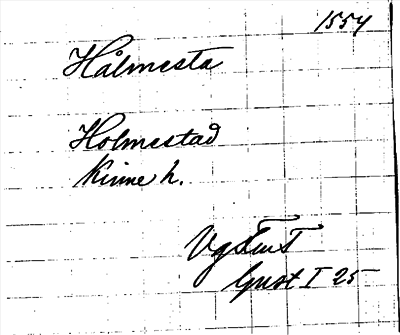 1554
Hålmesta
Holmestad
Kinne h.
Gust I 25